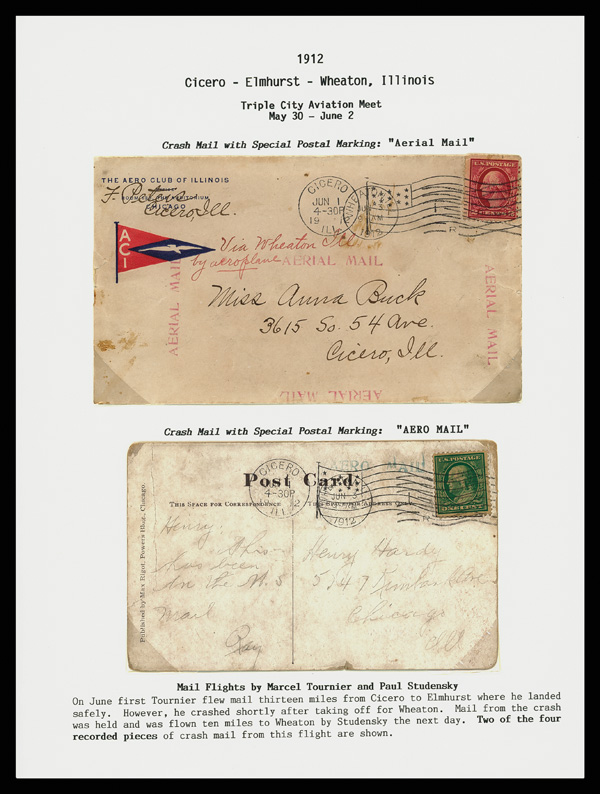 1912
Cicero - Elmhurst - Wheaton, Illinois
Triple City Aviation Meet
May 30 - June 2
Crash Mail with Special Postal Marking: "Aerial Mail"
THE AERO CLUB OF ILLINOIS
AUDITORIUM
CHICAGO
Cicero, Ill.
ACI
CICERO
JUN 1
4-30P
19
ILL.
WHEATON
JUN 3
AM
1912
U.S. POSTAGE
Via Wheaton Ill
by aeroplane
AERIAL MAIL
AERIAL MAIL
AERIAL MAIL
AERIAL MAIL
Miss Anna Buck
3615 So. 54 Ave.
Cicero, Ill.
Crash Mail with Special Postal Marking: "AERO MAIL"
AERO MAIL
Post Card.
CICERO
4-30P
12
ILL.
JUN 3
1912
U.S. POSTAGE
THIS SPACE FOR CORRESPONDENCE
THIS SPACE FOR ADDRESS ONLY.
Published by Max Rigot, Powers Bldg., Chicago.
Henry
This
has been
in the U.S
mail
Ray
Henry Hardy
Chicago
Ill
Mail Flights by Marcel Tournier and Paul Studensky
On June first Tournier flew mail thirteen miles from Cicero to Elmhurst where he landed
safely. However, he crashed shortly after taking off for Wheaton. Mail from the crash
was held and was flown ten miles to Wheaton by Studensky the next day. Two of the four
recorded pieces of crash mail from this flight are shown.